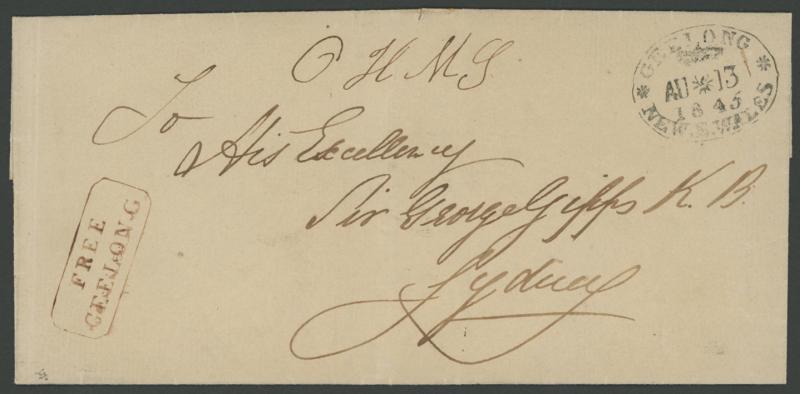 O H M S
To
His Excellency
Sir George Gipps K. B.
Sydney
GEELONG
AU 13
1845
NEW.S.WALES
FREE
GEELONG